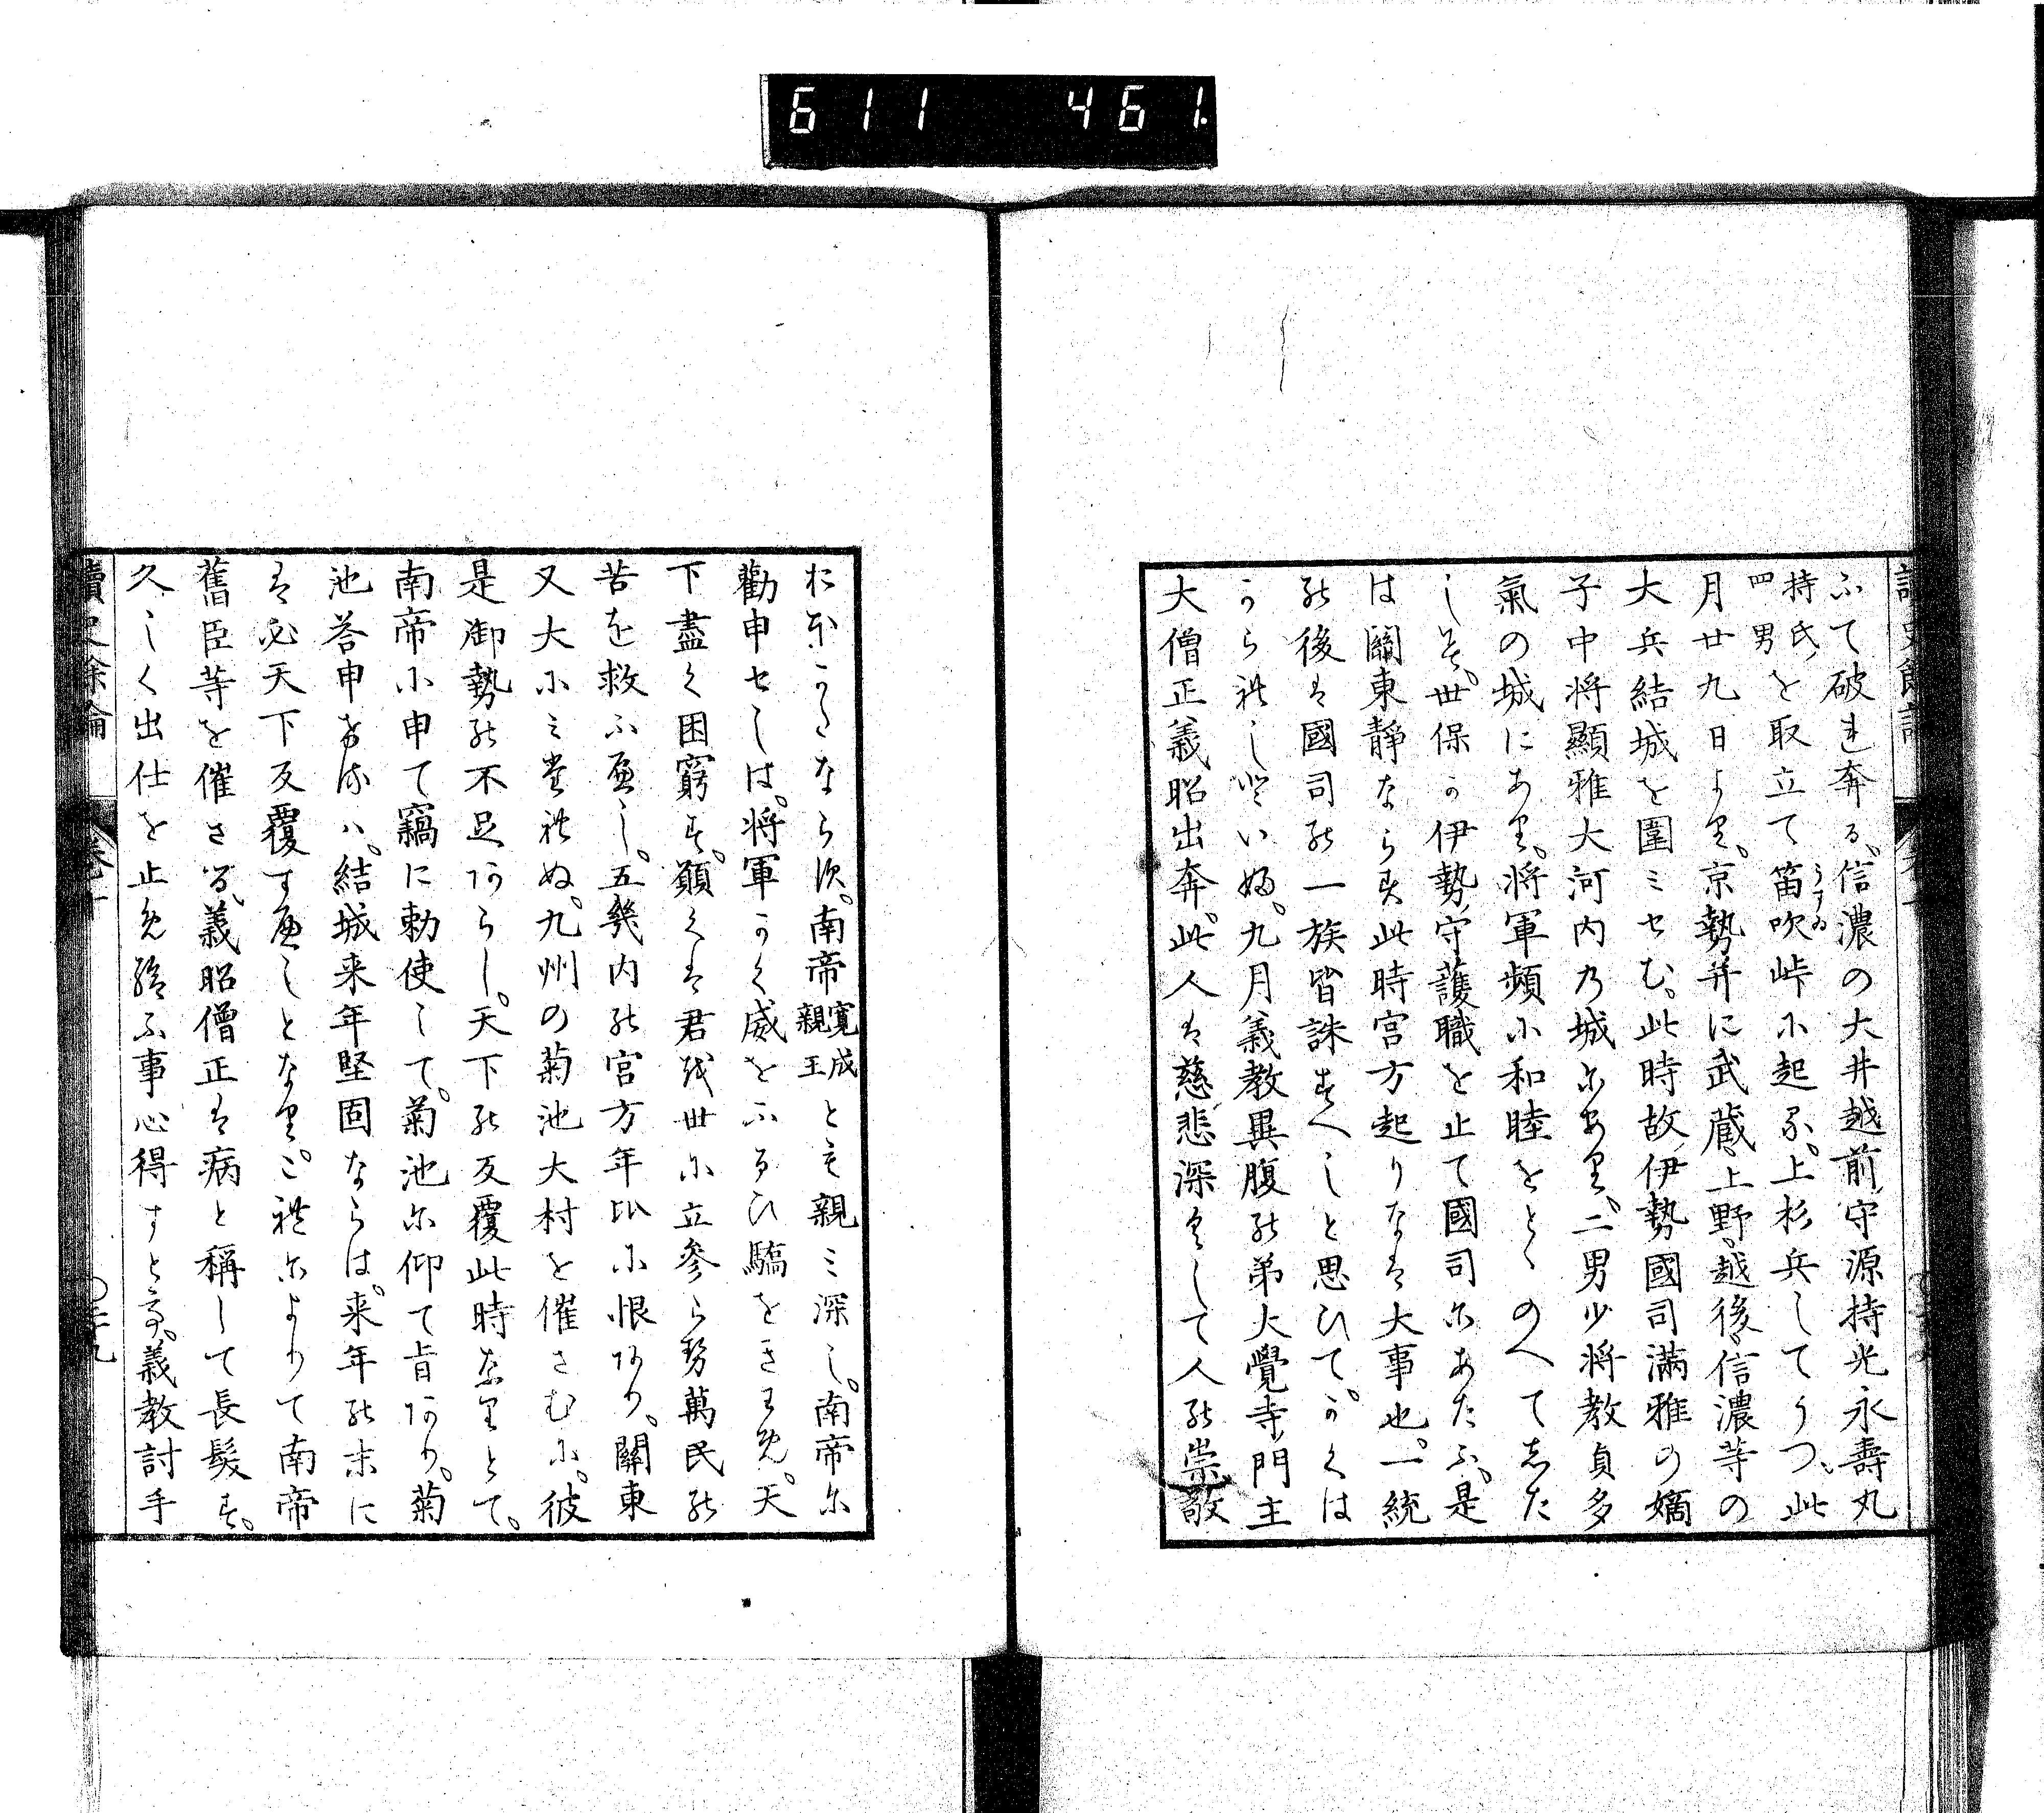 611 461
ふて破れ奔る。信濃の大井越前守源持光永壽丸
持氏四男を取立て笛吹峠に起る。上杉兵してうつ。此
うすゐ
月廿九日より。京勢并に武蔵上野越後信濃等の
大兵結城を圍ミせむ。此時故伊勢國司滿雅の嫡
子中将顯雅大河内乃城にあり。二男少将教貞多
氣の城にあり。将軍頻に和睦をとゝのへて志た
しむ。世保の伊勢守護職を止て國司にあたふ。是
は關東靜ならす此時宮方起りなは大事也。一統
の後は國司の一族皆誅すへしと思ひて。かくは
からはれしとそいふ。九月義教異腹の弟大覺寺門主
大僧正義昭出奔。此人は慈悲深くして人の崇敬
おほかたならす。南帝寛成親王とも親ミ深し。南帝に
勸申セしは。将軍かく威をふるひ驕をきはめ。天
下盡く困窮す。願くは君我世に立參らせ萬民の
苦を救ふへし。五畿内の宮方年比に恨あり。關東
又大にミたれぬ。九州の菊池大村を催さむに。彼
是御勢の不足あらし。天下の反覆此時なりとて。
南帝に申て竊に勅使して。菊池に仰て旨あり。菊
池荅申せしは。結城来年堅固ならは。来年の末に
は必天下反覆すへしとなり。これによりて南帝
舊臣等を催さる。義昭僧正は病と稱して長髮す。
久しく出仕を止め給ふ事心得すとて。義教討手
讀史餘論 巻十 〇三十九